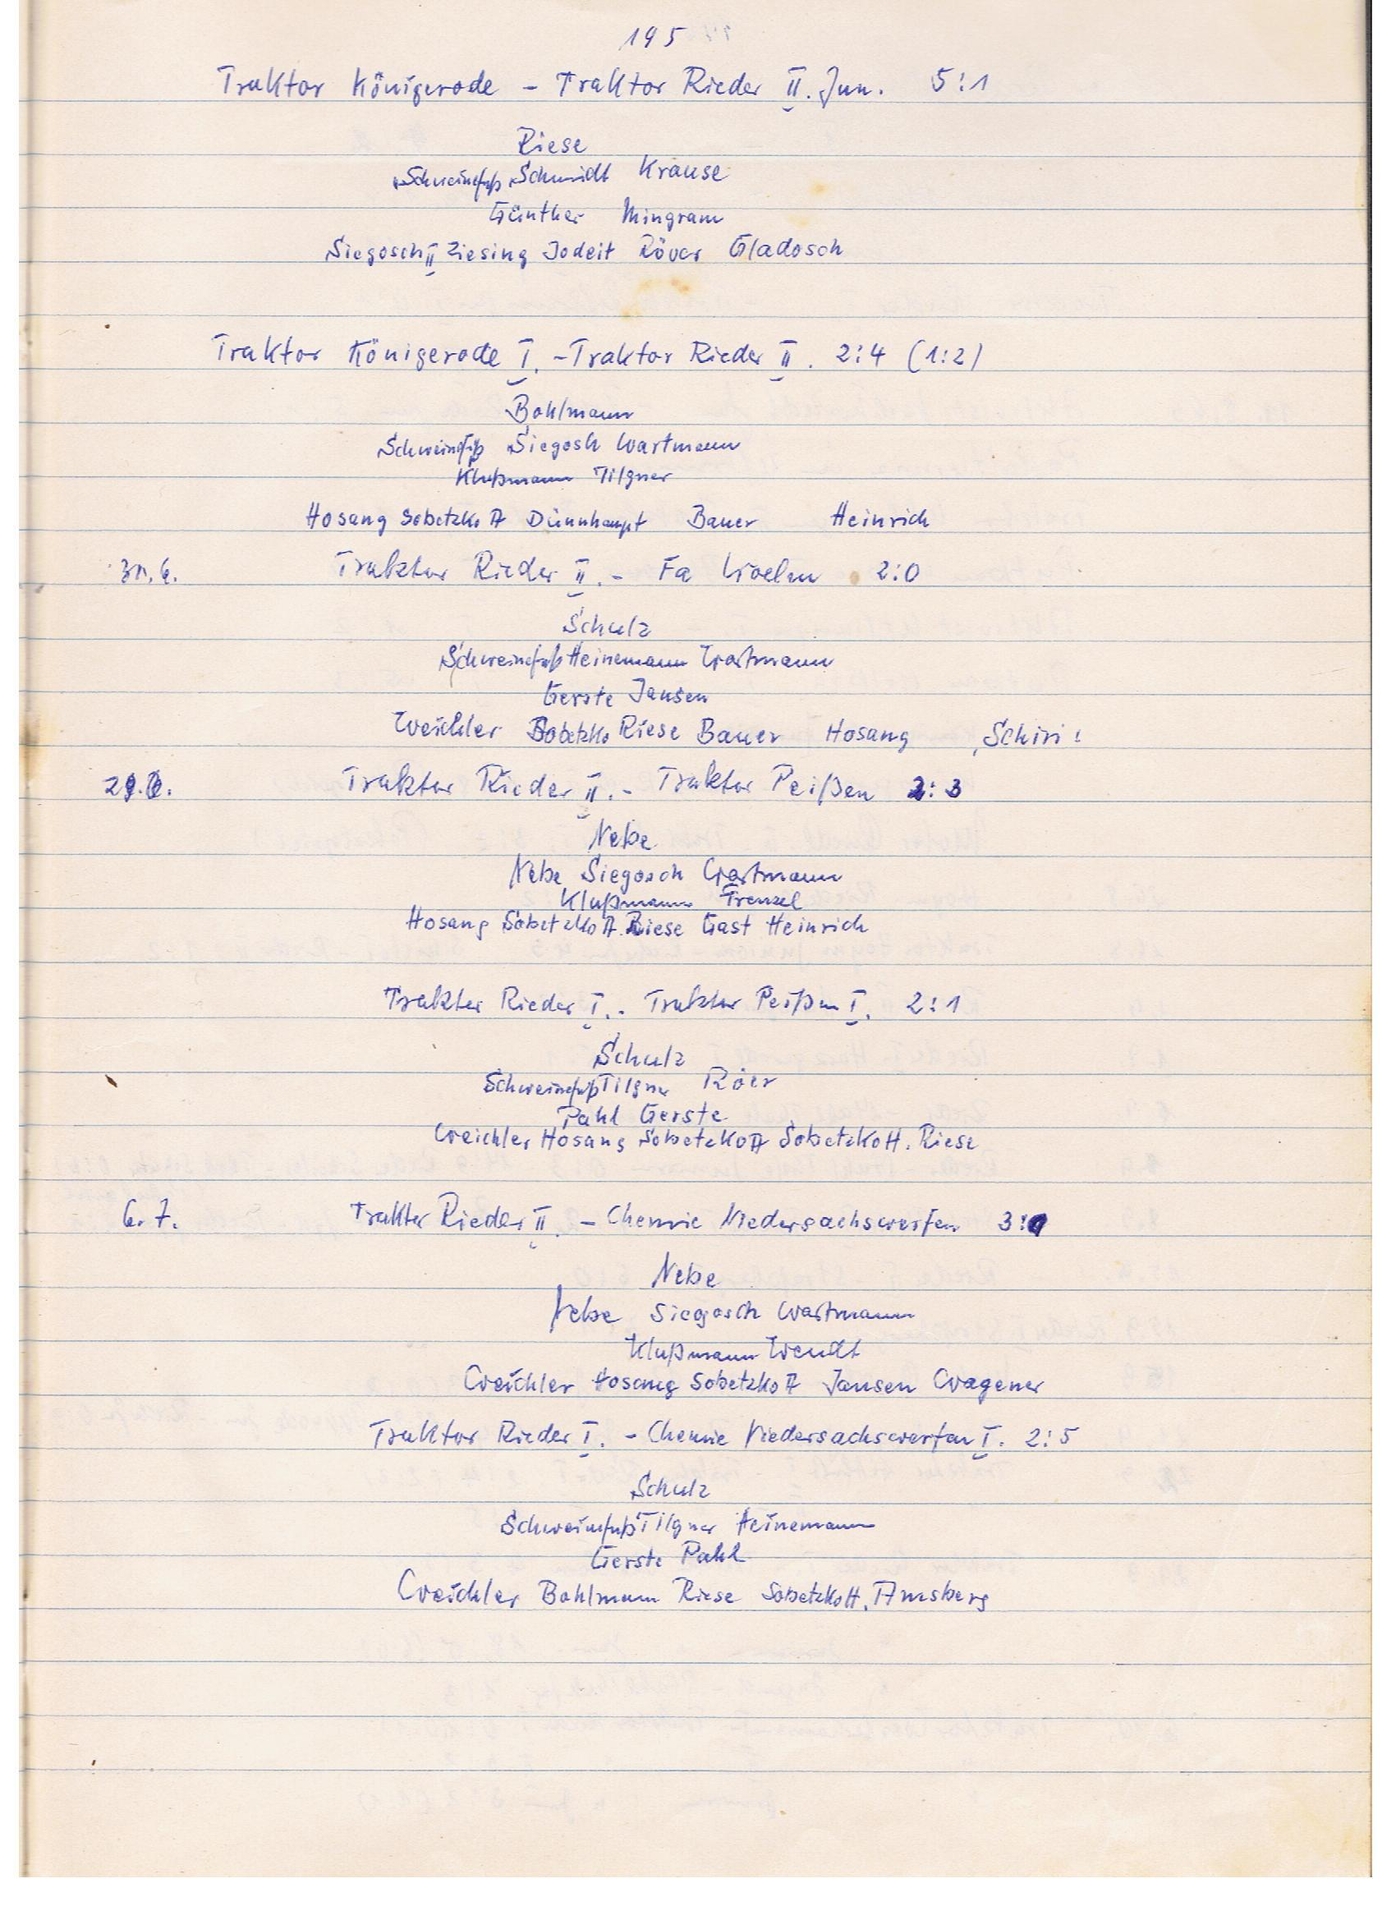 195
Traktor Königerode - Traktor Rieder II. Jun. 5:1
Riese
Schweinefuß Schmidt Krause
Günther Mingram
Siegosch II Ziesing Jodeit Röver Gladosch
Traktor Königerode I. - Traktor Rieder II. 2:4 (1:2)
Bohlmann
Schweinefuß Siegosch Wartmann
Klußmann Tilgner
Hosang Sobetzko A Dünnhaupt Bauer Heinrich
Traktor Rieder II. - Fa 2:0
Schulz
Schweinefuß Heinemann Wartmann
Gerste Jansen
Weichler Sobetzko Riese Bauer Hosang Schiri!
29.6. Traktor Rieder II. - Traktor Peißen 2:3
Nebe
Nebe Siegosch Wartmann
Klußmann Frenzel
Hosang Sobetzko A. Riese Gast Heinrich
Traktor Rieder I. - Traktor Peißen I. 2:1
Schulz
Schweinefuß Tilgner Röer
Pahl Gerste
Weichler Hosang Sobetzko A Sobetzko H. Riese
6.7. Traktor Rieder II. - Chemie Niedersachswerfen 3:
Nebe
Nebe Siegosch Wartmann
Klußmann Wendt
Weichler Hosang Sobetzko A Jansen Wagener
Traktor Rieder I. - Chemie Niedersachswerfen I. 2:5
Schulz
Schweinefuß Tilgner Heinemann
Gerste Pahl
Weichler Bohlmann Riese Sobetzko H. Amsberg